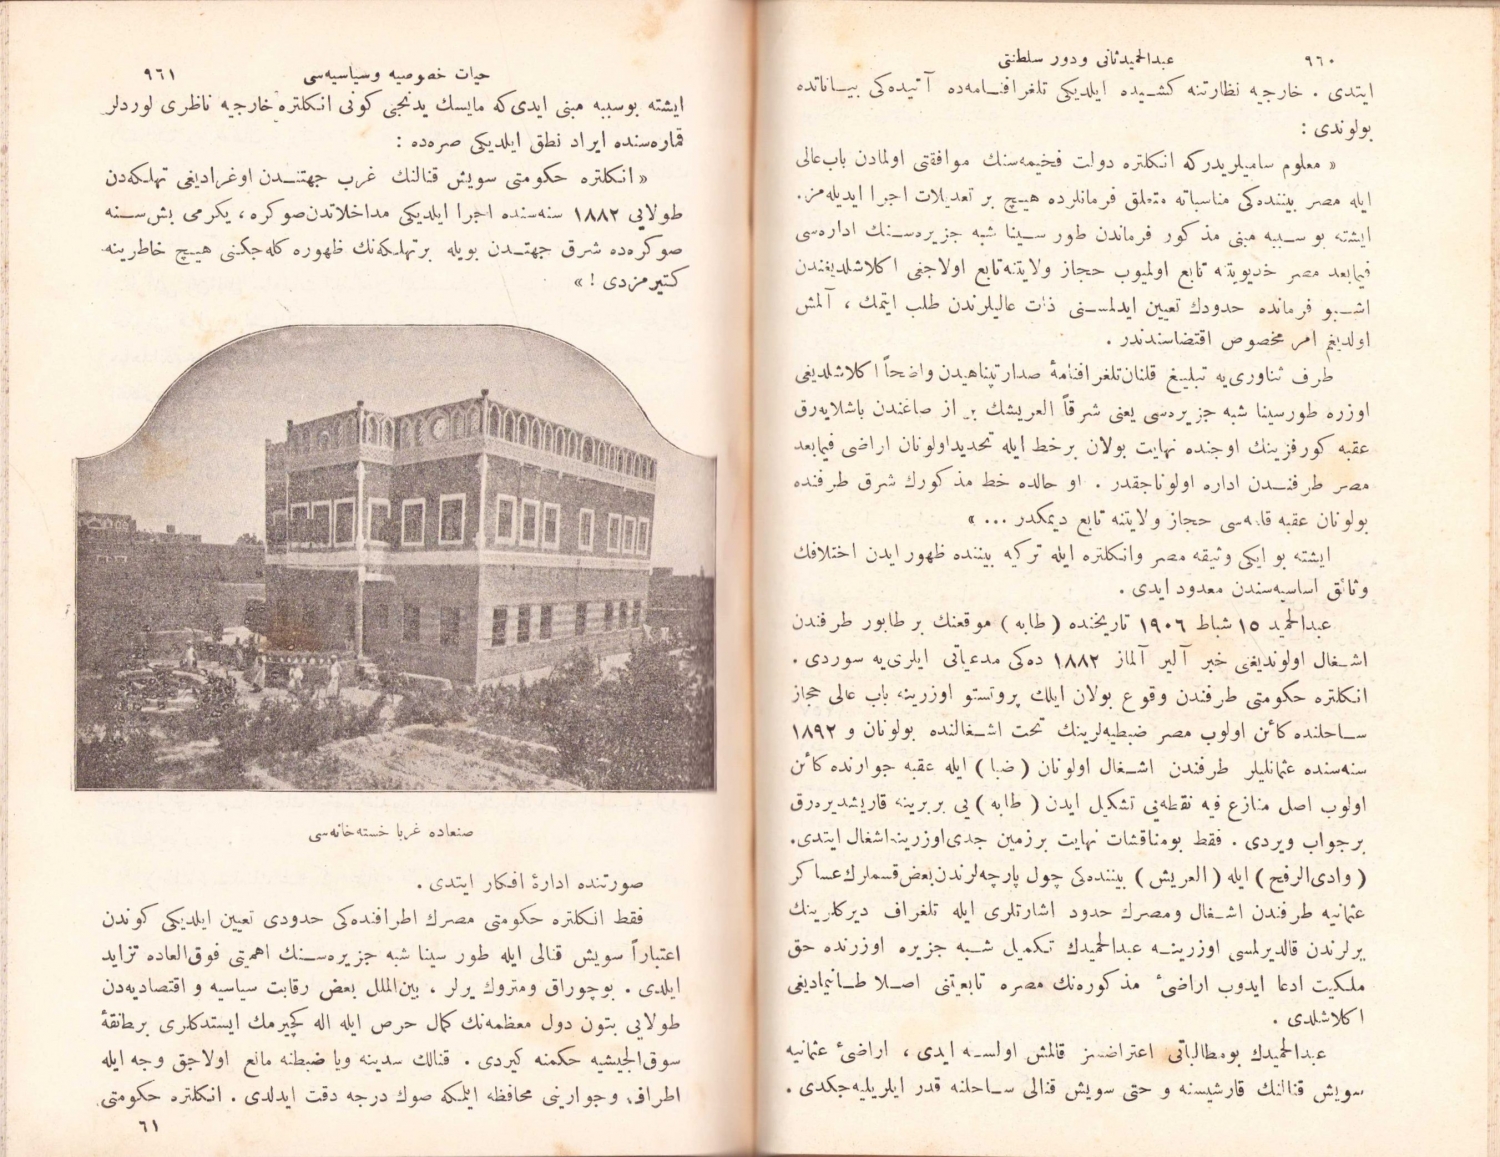 ٩٦٠ عبدالحميدثانی ودور سلطنتی
ايتدی . خارجيه نظارتنه كشيده ايلديكی تلغرافنامه‌ده آتيده‌كی بياناتده
بولوندی :
« معلوم ساميلريدركه انكلتره دولت فخيمه‌سنك موافقتی اولمادن باب‌عالی
ايله مصر بيننده‌كی مناسباته متعلق فرمانلرده هيچ بر تعديلات اجرا ايديله‌مز.
ايشته بو سببه مبنی مذكور فرماندن طور سينا شبه جزيره‌سنك اداره‌سی
فيمابعد مصر خديويتنه تابع اولميوب حجاز ولايتنه تابع اولاجغی اكلاشلديغندن
اشبو فرمانده حدودك تعيين ايدلمسنی ذات عاليلرندن طلب ايتمك ، آلمش
اولديغم امر مخصوص اقتضاسندندر .
طرف ثناوری‌يه تبليغ قلنان تلغرافنامۀ صدارتپناهيدن واضحاً اكلاشلديغی
اوزره طورسينا شبه جزيره‌سی يعنی شرقاً العريشك بر از صاغندن باشلايه‌رق
عقبه كورفزينك اوجنده نهايت بولان برخط ايله تحديداولونان اراضی فيمابعد
مصر طرفندن اداره اولوناجقدر . او حالده خط مذكورك شرق طرفنده
بولونان عقبه قلعه‌سی حجاز ولايتنه تابع ديمكدر ... »
ايشته بو ايكی وثيقه مصر وانكلتره ايله تركيه بيننده ظهور ايدن اختلافك
وثائق اساسيه‌سندن معدود ايدی .
عبدالحميد ١٥ شباط ١٩٠٦ تاريخنده ( طابه ) موقعنك بر طابور طرفندن
اشغال اولونديغی خبر آلير آلماز ١٨٨٢ ده‌كی مدعياتی ايلری‌يه سوردی .
انكلتره حكومتی طرفندن وقوع بولان ايلك پروتستو اوزرينه باب عالی حجاز
ساحلنده كائن اولوب مصر ضبطيه‌لرينك تحت اشغالنده بولونان و ١٨٩٢
سنه‌سنده عثمانليلر طرفندن اشغال اولونان ( ضبا ) ايله عقبه جوارنده كائن
اولوب اصل منازع فيه نقطه‌يی تشكيل ايدن ( طابه ) يی بربرينه قاريشديره‌رق
برجواب ويردی . فقط بومناقشات نهايت برزمين جدی اوزرينه اشغال ايتدی.
( وادی‌الرفح ) ايله ( العريش ) بيننده‌كی چول پارچه‌لرندن بعض قسملرك عساكر
عثمانيه طرفندن اشغال ومصرك حدود اشارتلری ايله تلغراف ديركلرينك
يرلرندن قالديرلمسی اوزرينه عبدالحميدك تكميل شبه جزيره اوزرنده حق
ملكيت ادعا ايدوب اراضیٔ مذكوره‌نك مصره تابعيتنی اصلا طانيماديغی
اكلاشلدی .
عبدالحميدك بومطالباتی اعتراضسز قالمش اولسه ايدی ، اراضیٔ عثمانيه
سويش قنالنك قارشيسنه و حتی سويش قنالی ساحلنه قدر ايلريليه‌جكدی .
حيات خصوصيه وسياسيه‌سی ٩٦١
ايشته بوسببه مبنی ايدی‌كه مايسك يدنجی كونی انكلتره خارجيه ناظری لوردلر
قماره‌سنده ايراد نطق ايلديكی صره‌ده :
« انكلتره حكومتی سويش قنالنك غرب جهتندن اوغراديغی تهلكه‌دن
طولايی ١٨٨٢ سنه‌سنده اجرا ايلديكی مداخلاتدن صوكره ، يكرمی بش سنه
صوكره‌ده شرق جهتدن بويله برتهلكه‌نك ظهوره كله‌جكنی هيچ خاطرينه
كتيرمزدی ! »
صنعاده غربا خسته‌خانه‌سی
صورتنده ادارۀ افكار ايتدی .
فقط انكلتره حكومتی مصرك اطرافنده‌كی حدودی تعيين ايلديكی كوندن
اعتباراً سويش قنالی ايله طور سينا شبه جزيره‌سنك اهميتی فوق‌العاده تزايد
ايلدی . بوچوراق ومتروك يرلر ، بين‌الملل بعض رقابت سياسيه و اقتصاديه‌دن
طولايی بتون دول معظمه‌نك كمال حرص ايله اله كچيرمك ايستدكلری برنطقۀ
سوق‌الجيشيه حكمنه كيردی . قنالك سدينه ويا ضبطنه مانع اولاجق وجه ايله
اطراف وجوارينی محافظه ايلمكه صوك درجه دقت ايدلدی . انكلتره حكومتی
٦١